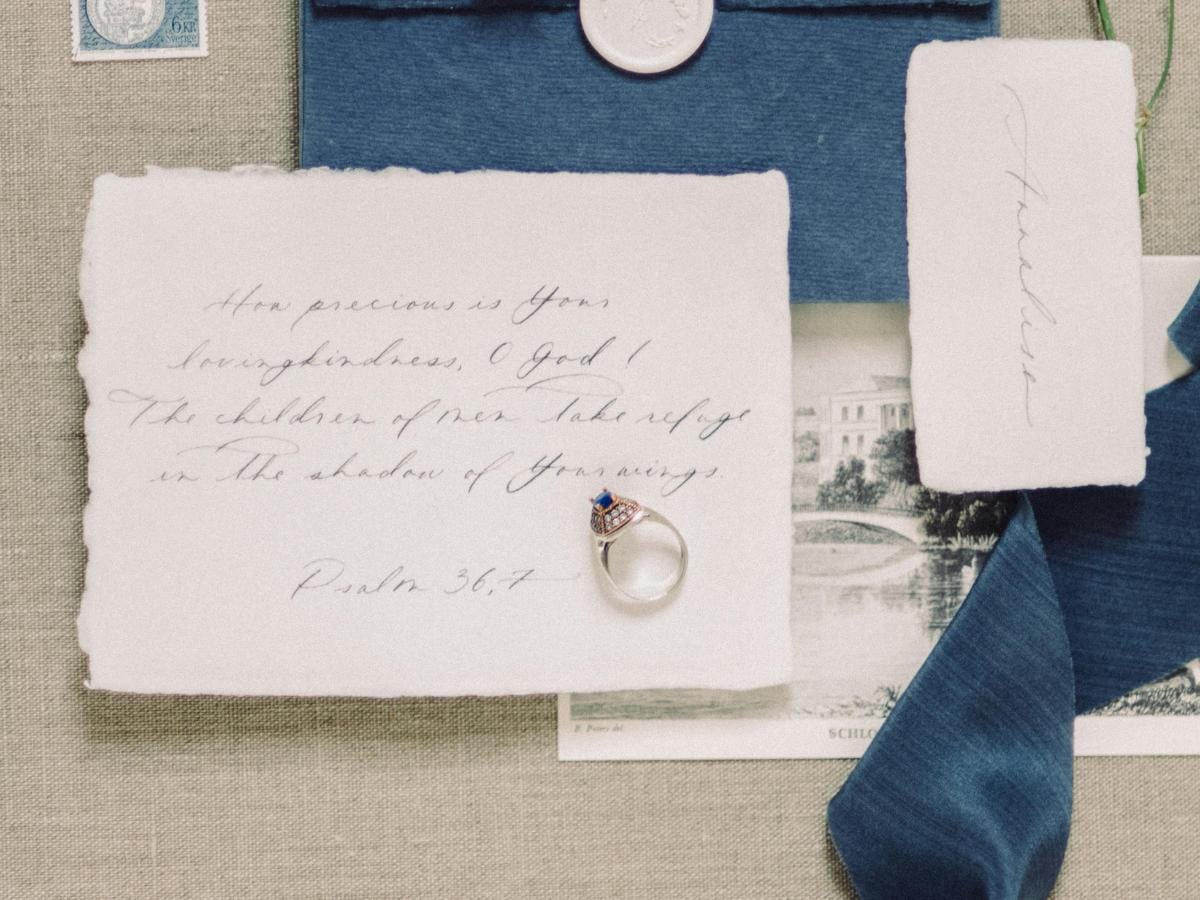 6KR
Sverige
How precious is Your
lovingkindness, O God!
The children of men take refuge
in the shadow of Your wings.
Psalm 36,7
Annalisa
SCHLO